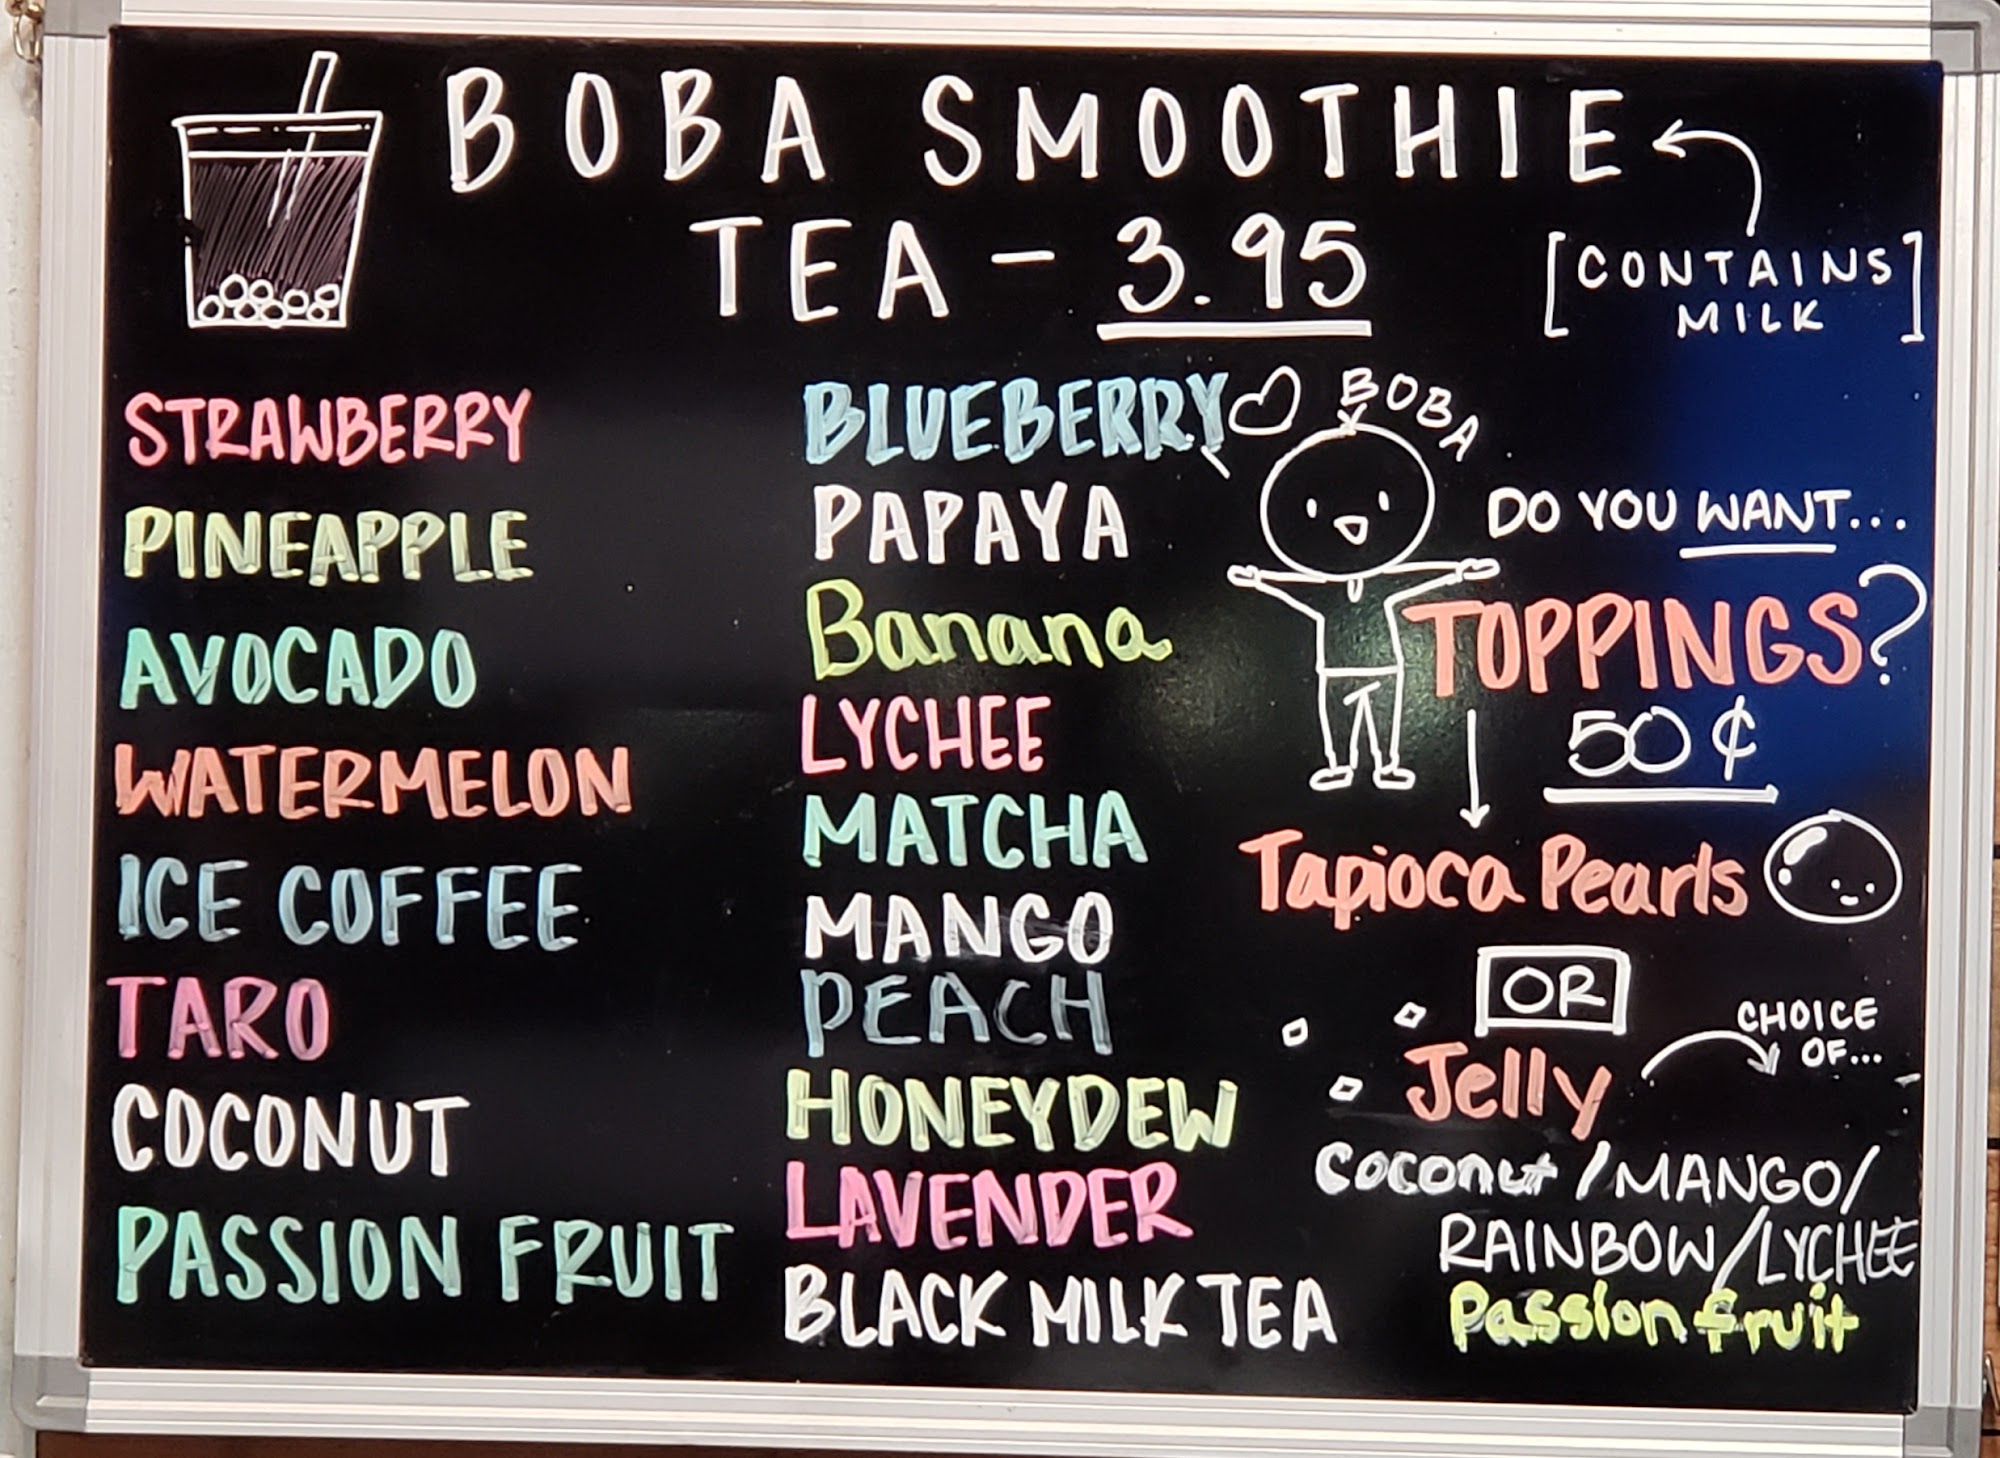 BOBA SMOOTHIE
TEA - 3.95
[CONTAINS
MILK]
STRAWBERRY
PINEAPPLE
AVOCADO
WATERMELON
ICE COFFEE
TARO
COCONUT
PASSION FRUIT
BLUEBERRY
PAPAYA
Banana
LYCHEE
MATCHA
MANGO
PEACH
HONEYDEW
LAVENDER
BLACK MILK TEA
BOBA
DO YOU WANT...
TOPPINGS?
50¢
Tapioca Pearls
OR
Jelly
CHOICE
OF...
Coconut/MANGO/
RAINBOW/LYCHEE
Passion fruit